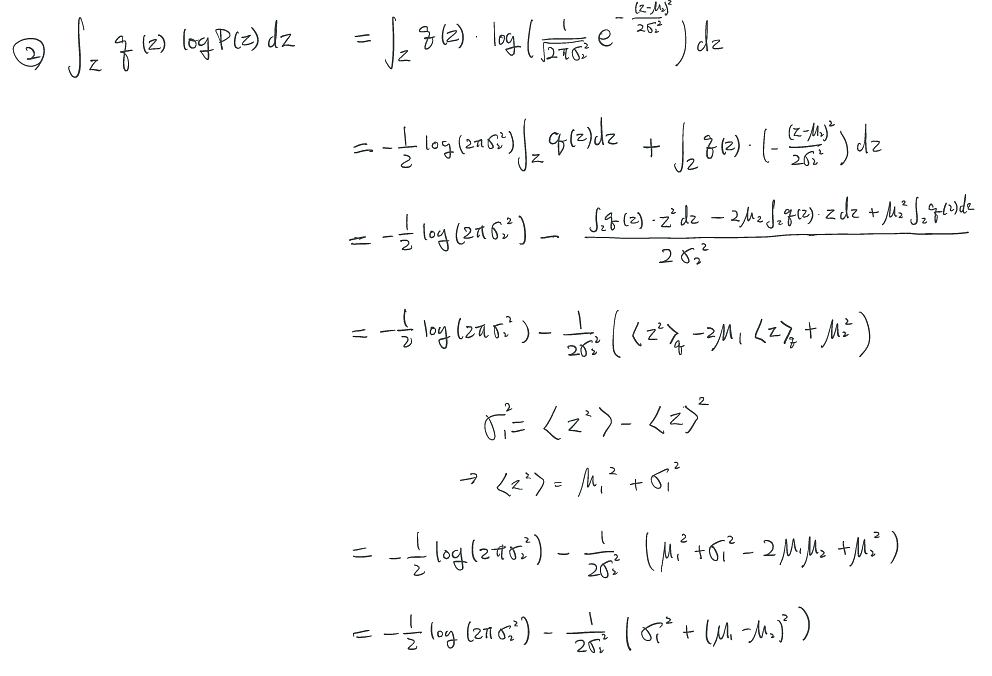 ② ∫_z q(z) log P(z) dz = ∫_z q(z) · log( \frac{1}{\sqrt{2πσ₂²}} e^{-\frac{(z-μ₂)²}{2σ₂²}} ) dz
= -\frac{1}{2} log(2πσ₂²) ∫_z q(z)dz + ∫_z q(z) · (-\frac{(z-μ₂)²}{2σ₂²}) dz
= -\frac{1}{2} log(2πσ₂²) - \frac{∫_z q(z) · z² dz - 2μ₂ ∫_z q(z) · z dz + μ₂² ∫_z q(z)dz}{2σ₂²}
= -\frac{1}{2} log(2πσ₂²) - \frac{1}{2σ₂²} ( ⟨z²⟩_q - 2μ₁ ⟨z⟩_q + μ₂² )
σ₁² = ⟨z²⟩ - ⟨z⟩²
→ ⟨z²⟩ = μ₁² + σ₁²
= -\frac{1}{2} log(2πσ₂²) - \frac{1}{2σ₂²} ( μ₁² + σ₁² - 2μ₁μ₂ + μ₂² )
= -\frac{1}{2} log(2πσ₂²) - \frac{1}{2σ₂²} ( σ₁² + (μ₁ - μ₂)² )